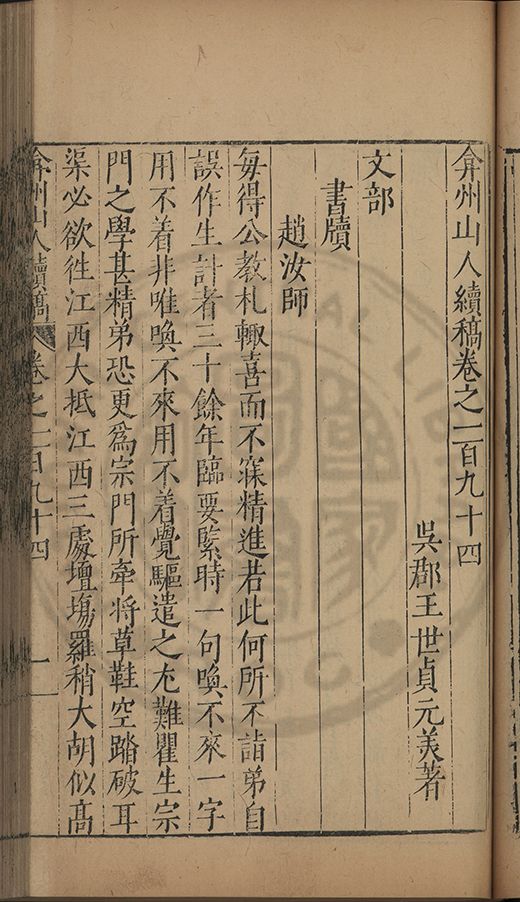 弇州山人續稿卷之一百九十四
吳郡王世貞元美著
文部
書牘
趙汝師
每得公教札輙喜而不寐精進若此何所不詣弟自
誤作生計者三十餘年臨要緊時一句喚不來一字
用不着非唯喚不來用不着覺驅遣之尤難瞿生宗
門之學甚精弟恐更爲宗門所牽將草鞋空踏破耳
渠必欲徃江西大抵江西三處壇塲羅稍大胡似髙
弇州山人續稿
卷之一百九十四
一